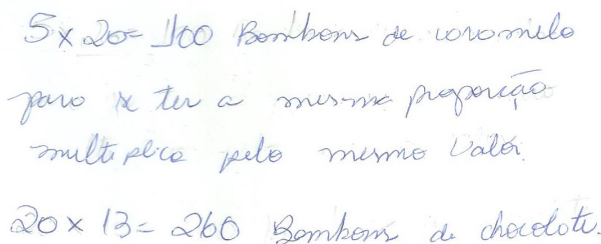 5 x 20 = 100 Bombons de coromelo
para se ter a mesma proporção
multiplica pelo mesmo valor.
20 x 13 = 260 Bombons de chocolote.